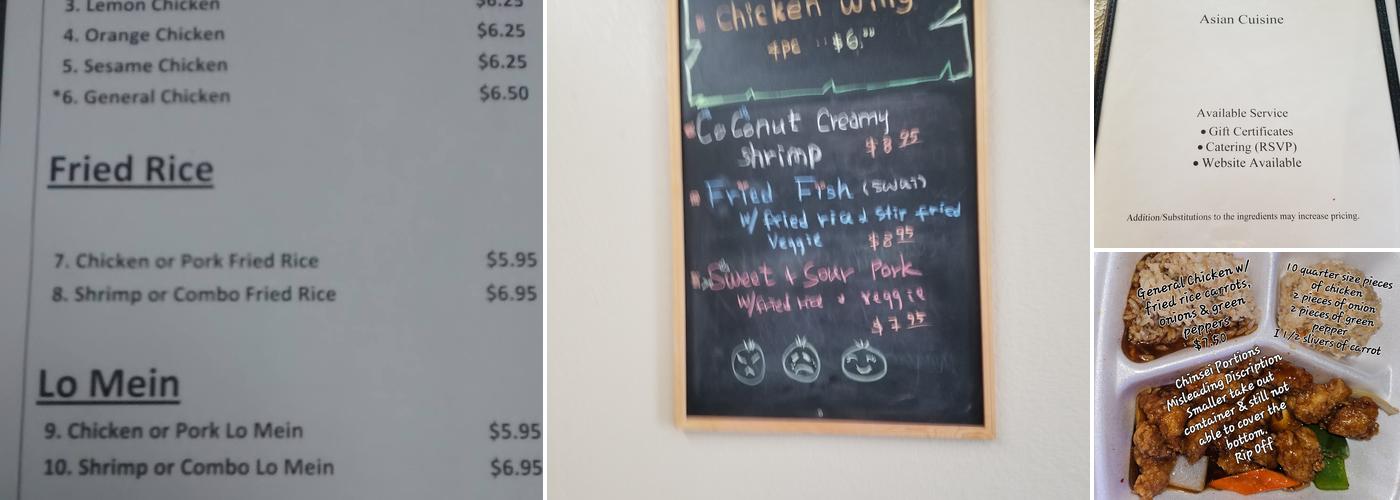 3. Lemon Chicken $6.25
4. Orange Chicken $6.25
5. Sesame Chicken $6.25
*6. General Chicken $6.50
Fried Rice
7. Chicken or Pork Fried Rice $5.95
8. Shrimp or Combo Fried Rice $6.95
Lo Mein
9. Chicken or Pork Lo Mein $5.95
10. Shrimp or Combo Lo Mein $6.95
Chicken Wing
4pc $6.
Coconut Creamy
shrimp $8 95
Fried Fish (swai)
w/ fried rice & stir fried
veggie $8 95
Sweet & Sour Pork
w/fried rice & veggie
$7 95
Asian Cuisine
Available Service
• Gift Certificates
• Catering (RSVP)
• Website Available
Addition/Substitutions to the ingredients may increase pricing.
General Chicken w/
fried rice carrots,
onions & green
peppers
$7.50
10 quarter size pieces
of chicken
2 pieces of onion
2 pieces of green
pepper
1 1/2 slivers of carrot
Chinsei Portions
Misleading Discription
Smaller take out
container & still not
able to cover the
bottom.
Rip Off